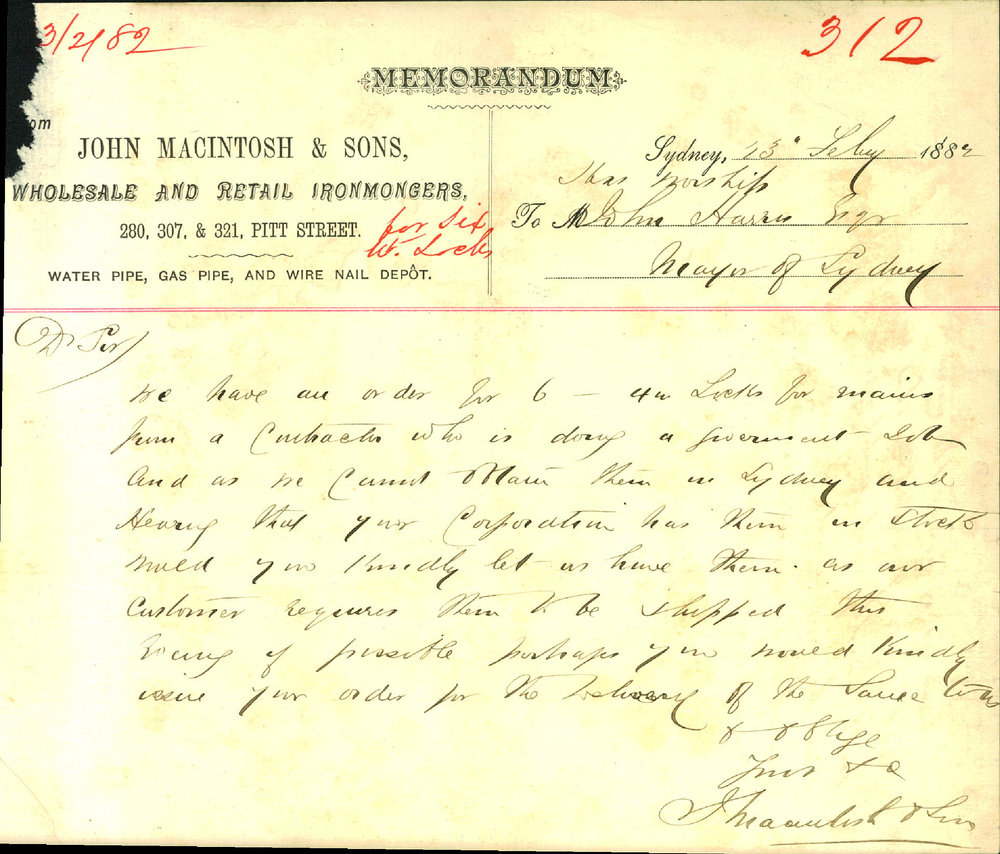 3/2/82
312
MEMORANDUM
om
JOHN MACINTOSH & SONS,
WHOLESALE AND RETAIL IRONMONGERS,
280, 307, & 321, PITT STREET.
for Six
W. Locks
WATER PIPE, GAS PIPE, AND WIRE NAIL DEPÔT.
Sydney, 23d Feby 1882
His worship
To M John Harris Esqr
Mayor of Sydney
Dr Sir
We have an order for 6 - 4in Locks for mains
from a Contractor who is doing a government Job
and as we Cannot Obtain them in Sydney and
Hearing that your Corporation has them in Stock
would you Kindly let us have them. as our
Customer requires them to be shipped this
Evening if possible perhaps you would Kindly
issue your order for the Delivery of the Same to us
& oblige
Yours &c
J Macintosh & Sons